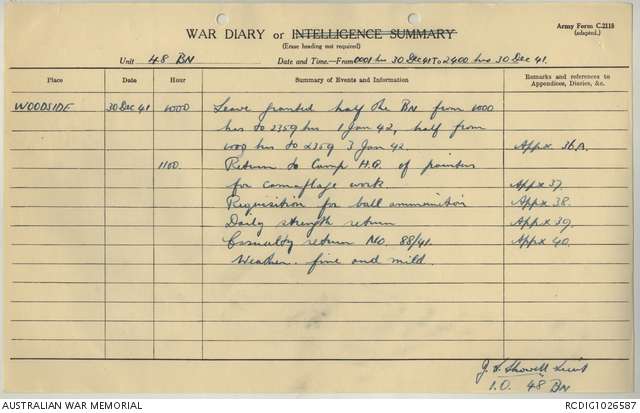 Army Form C.2118
(adapted.)
WAR DIARY or INTELLIGENCE SUMMARY
(Erase heading not required)
Unit 48 BN Date and Time.—From 0001 hrs 30 Dec 41 To 2400 hrs 30 Dec 41.
Place Date Hour Summary of Events and Information Remarks and references to Appendices, Diaries, &c.
WOODSIDE 30 Dec 41 1000 Leave granted half the BN from 1000
hrs to 2359 hrs 1 Jan 42, half from
hrs to 2359 3 Jan 42. Appx 36A.
1100 Return to Camp H.Q. of painters
for camaflage work. Appx 37.
Requisition for ball ammunition Appx 38.
Daily strength return Appx 39.
Casualty return No. 88/41. Appx 40.
Weather. fine and mild.
Showell Lieut
I.O. 48 BN
AUSTRALIAN WAR MEMORIAL RCDIG1026587